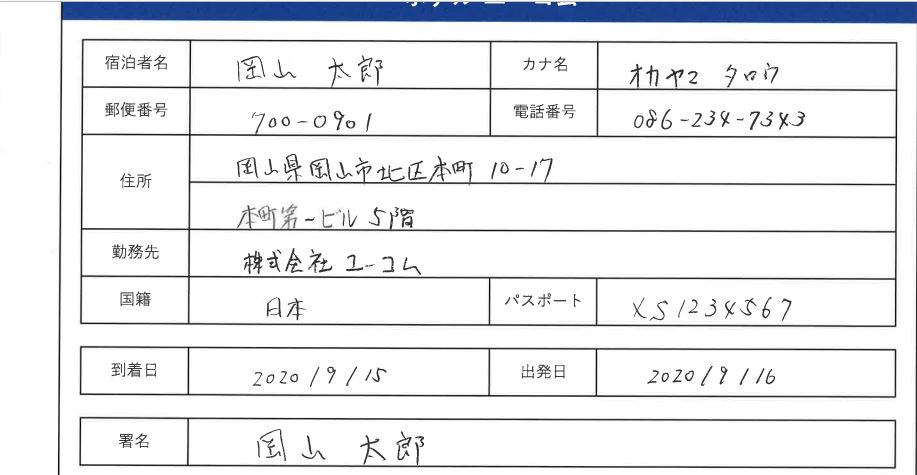 宿泊者名 岡山 太郎 カナ名 オカヤマ タロウ
郵便番号 700-0901 電話番号 086-234-7343
住所 岡山県岡山市北区本町 10-17
本町第一ビル 5階
勤務先 株式会社 ユーコム
国籍 日本 パスポート XS1234567
到着日 2020/9/15 出発日 2020/9/16
署名 岡山 太郎